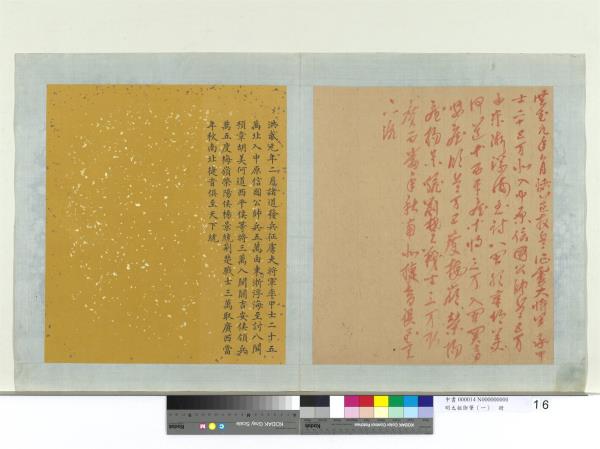 洪武元年二月諸道發兵征虜大將軍率甲
士二十五万北入中原信國公帥兵五万
由東浙浮海至討八閩預章胡美
何道西平侯等將三万入閩關吉
安侯領兵万五度梅嶺滎陽
侯楊景統荊楚戰士三万取
廣西當年秋南北捷音俱至天
下統
洪武元年二月諸道發兵征虜大將軍率甲士二十五
萬北入中原信國公帥兵五萬由東浙浮海至討八閩
預章胡美何道西平侯等將三萬入閩關吉安侯領兵
萬五度梅嶺滎陽侯楊景統荊楚戰士三萬取廣西當
年秋南北捷音俱至天下統
KODAK Gray Scale
Kodak
KODAK Color Control Patches
中書000014 N000000000
明太祖御筆(一) 冊
16